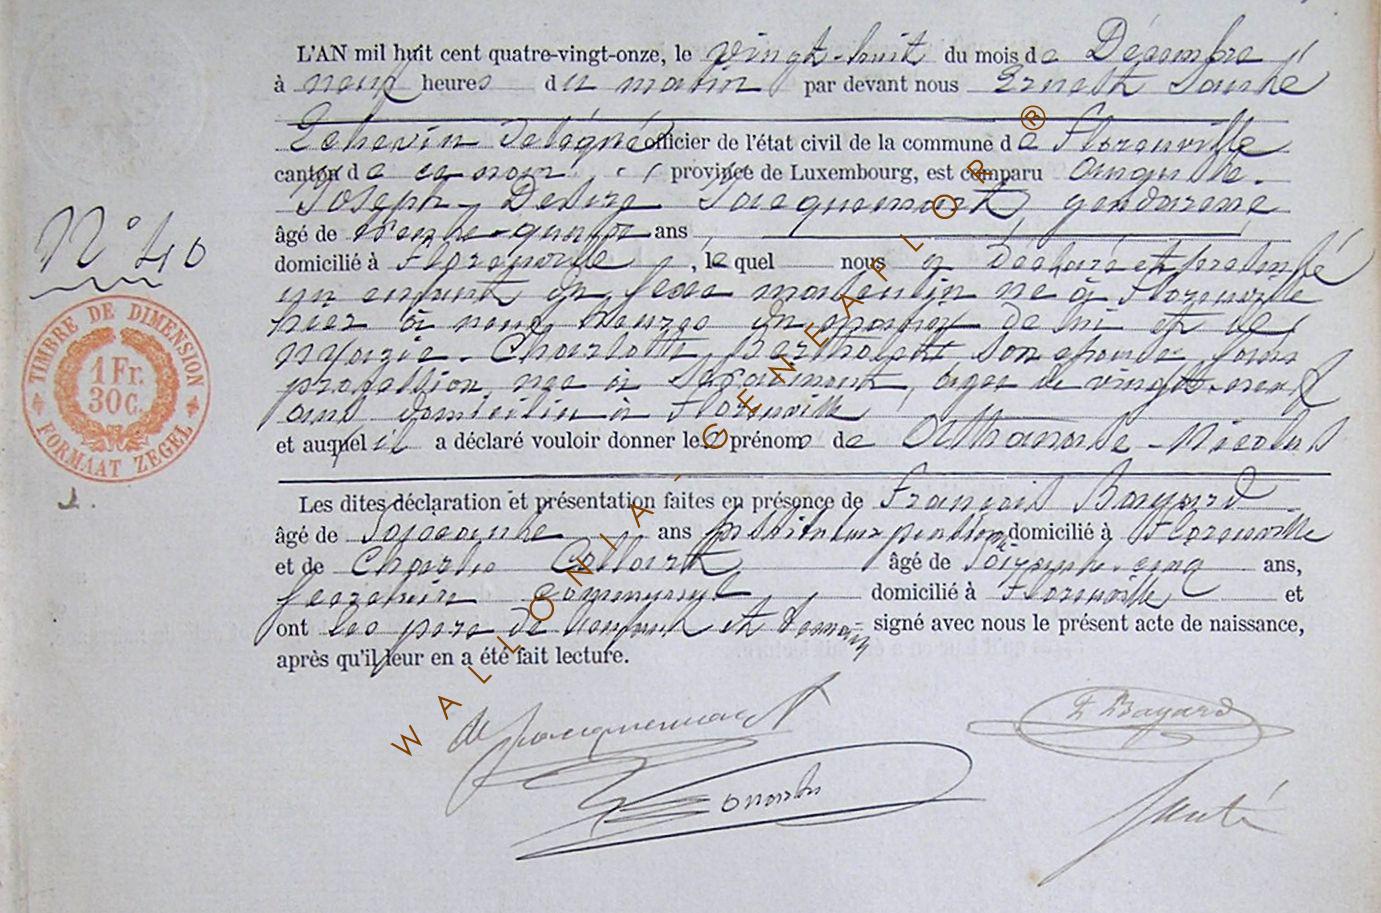 L'AN mil huit cent quatre-vingt-onze, le vingt-huit du mois de Décembre
à neuf heures du matin par devant nous Ernest Santé
Echevin Délégué officier de l'état civil de la commune de Florenville
canton de province de Luxembourg, est comparu Auguste
Joseph Desire Jacquemart, gendarme
âgé de trente-quatre ans
domicilié à Florenville, lequel nous a Déclaré et présenté
un enfant du sexe masculin né à Florenville
hier à neuf heures de lui et de
Marie Charlotte son épouse, sans
profession, née à âgée de vingt-neuf
ans domiciliée à Florenville
et auquel il a déclaré vouloir donner les prénoms de Athanase-Nicolas
Les dites déclaration et présentation faites en présence de François Bayard
âgé de Soixante ans domicilié à Florenville
et de Charles Collart âgé de Soixante-cinq ans,
communal domicilié à Florenville et
ont les père de l'enfant et témoins signé avec nous le présent acte de naissance,
après qu'il leur en a été fait lecture.
N° 40
TIMBRE DE DIMENSION
1 Fr.
30 C.
FORMAAT ZEGEL
Jacquemart
F Bayard
Santé
WALLONIA-GENEAFLOR®